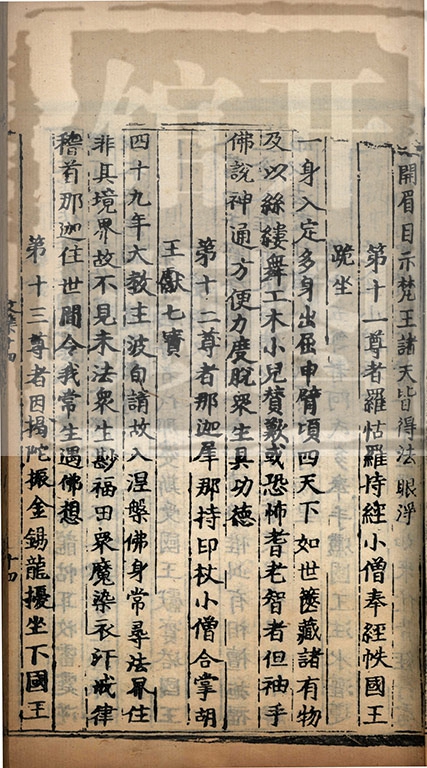 開眉目示梵王諸天皆得法眼淨
第十一尊者羅怙羅持經小僧奉經帙國王
跪坐
一身入定多身出屈申臂頃四天下如世篋藏諸有物
及以絲縷舞工木小兒贊歎或恐怖耆老智者但袖手
佛說神通方便力度脫衆生具功德
第十二尊者那迦犀那持印杖小僧合掌胡
王獻七寶
四十九年大教主波旬請故入涅槃佛身常尋法界住
非其境界故不見末法衆生尠福田眾魔染衣汙戒律
稽首那迦住世間令我常生遇佛想
第十三尊者因揭陀振金錫龍擾坐下國王
十四